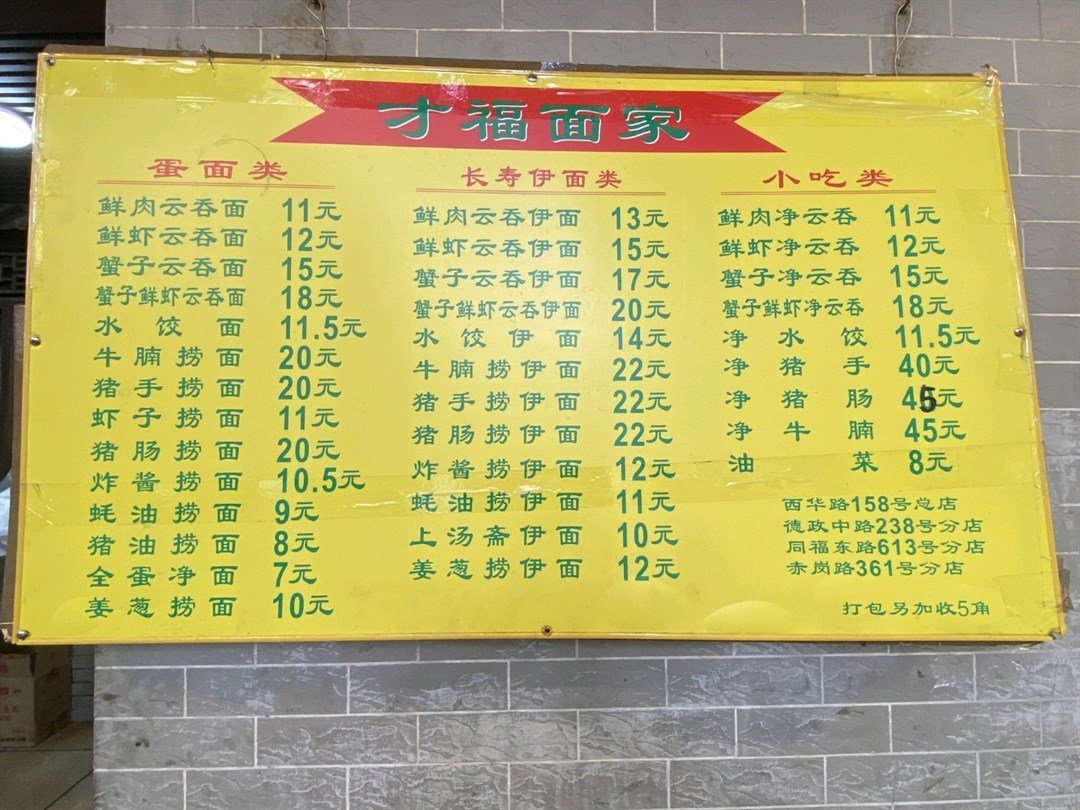 才福面家
蛋面类
鲜肉云吞面 11元
鲜虾云吞面 12元
蟹子云吞面 15元
蟹子鲜虾云吞面 18元
水饺面 11.5元
牛腩捞面 20元
猪手捞面 20元
虾子捞面 11元
猪肠捞面 20元
炸酱捞面 10.5元
蚝油捞面 9元
猪油捞面 8元
全蛋净面 7元
姜葱捞面 10元
长寿伊面类
鲜肉云吞伊面 13元
鲜虾云吞伊面 15元
蟹子云吞伊面 17元
蟹子鲜虾云吞伊面 20元
水饺伊面 14元
牛腩捞伊面 22元
猪手捞伊面 22元
猪肠捞伊面 22元
炸酱捞伊面 12元
蚝油捞伊面 11元
上汤斋伊面 10元
姜葱捞伊面 12元
小吃类
鲜肉净云吞 11元
鲜虾净云吞 12元
蟹子净云吞 15元
蟹子鲜虾净云吞 18元
净水饺 11.5元
净猪手 40元
净猪肠 45元
净牛腩 45元
油菜 8元
西华路158号总店
德政中路238号分店
同福东路613号分店
赤岗路361号分店
打包另加收5角